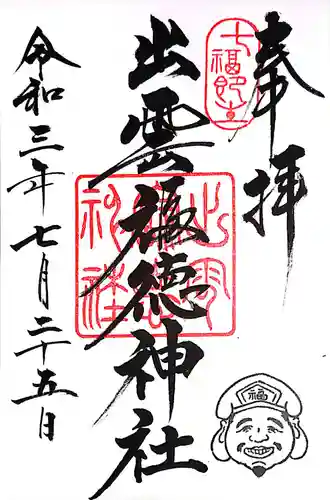 奉拝
出雲福徳神社
令和三年七月二十五日
福